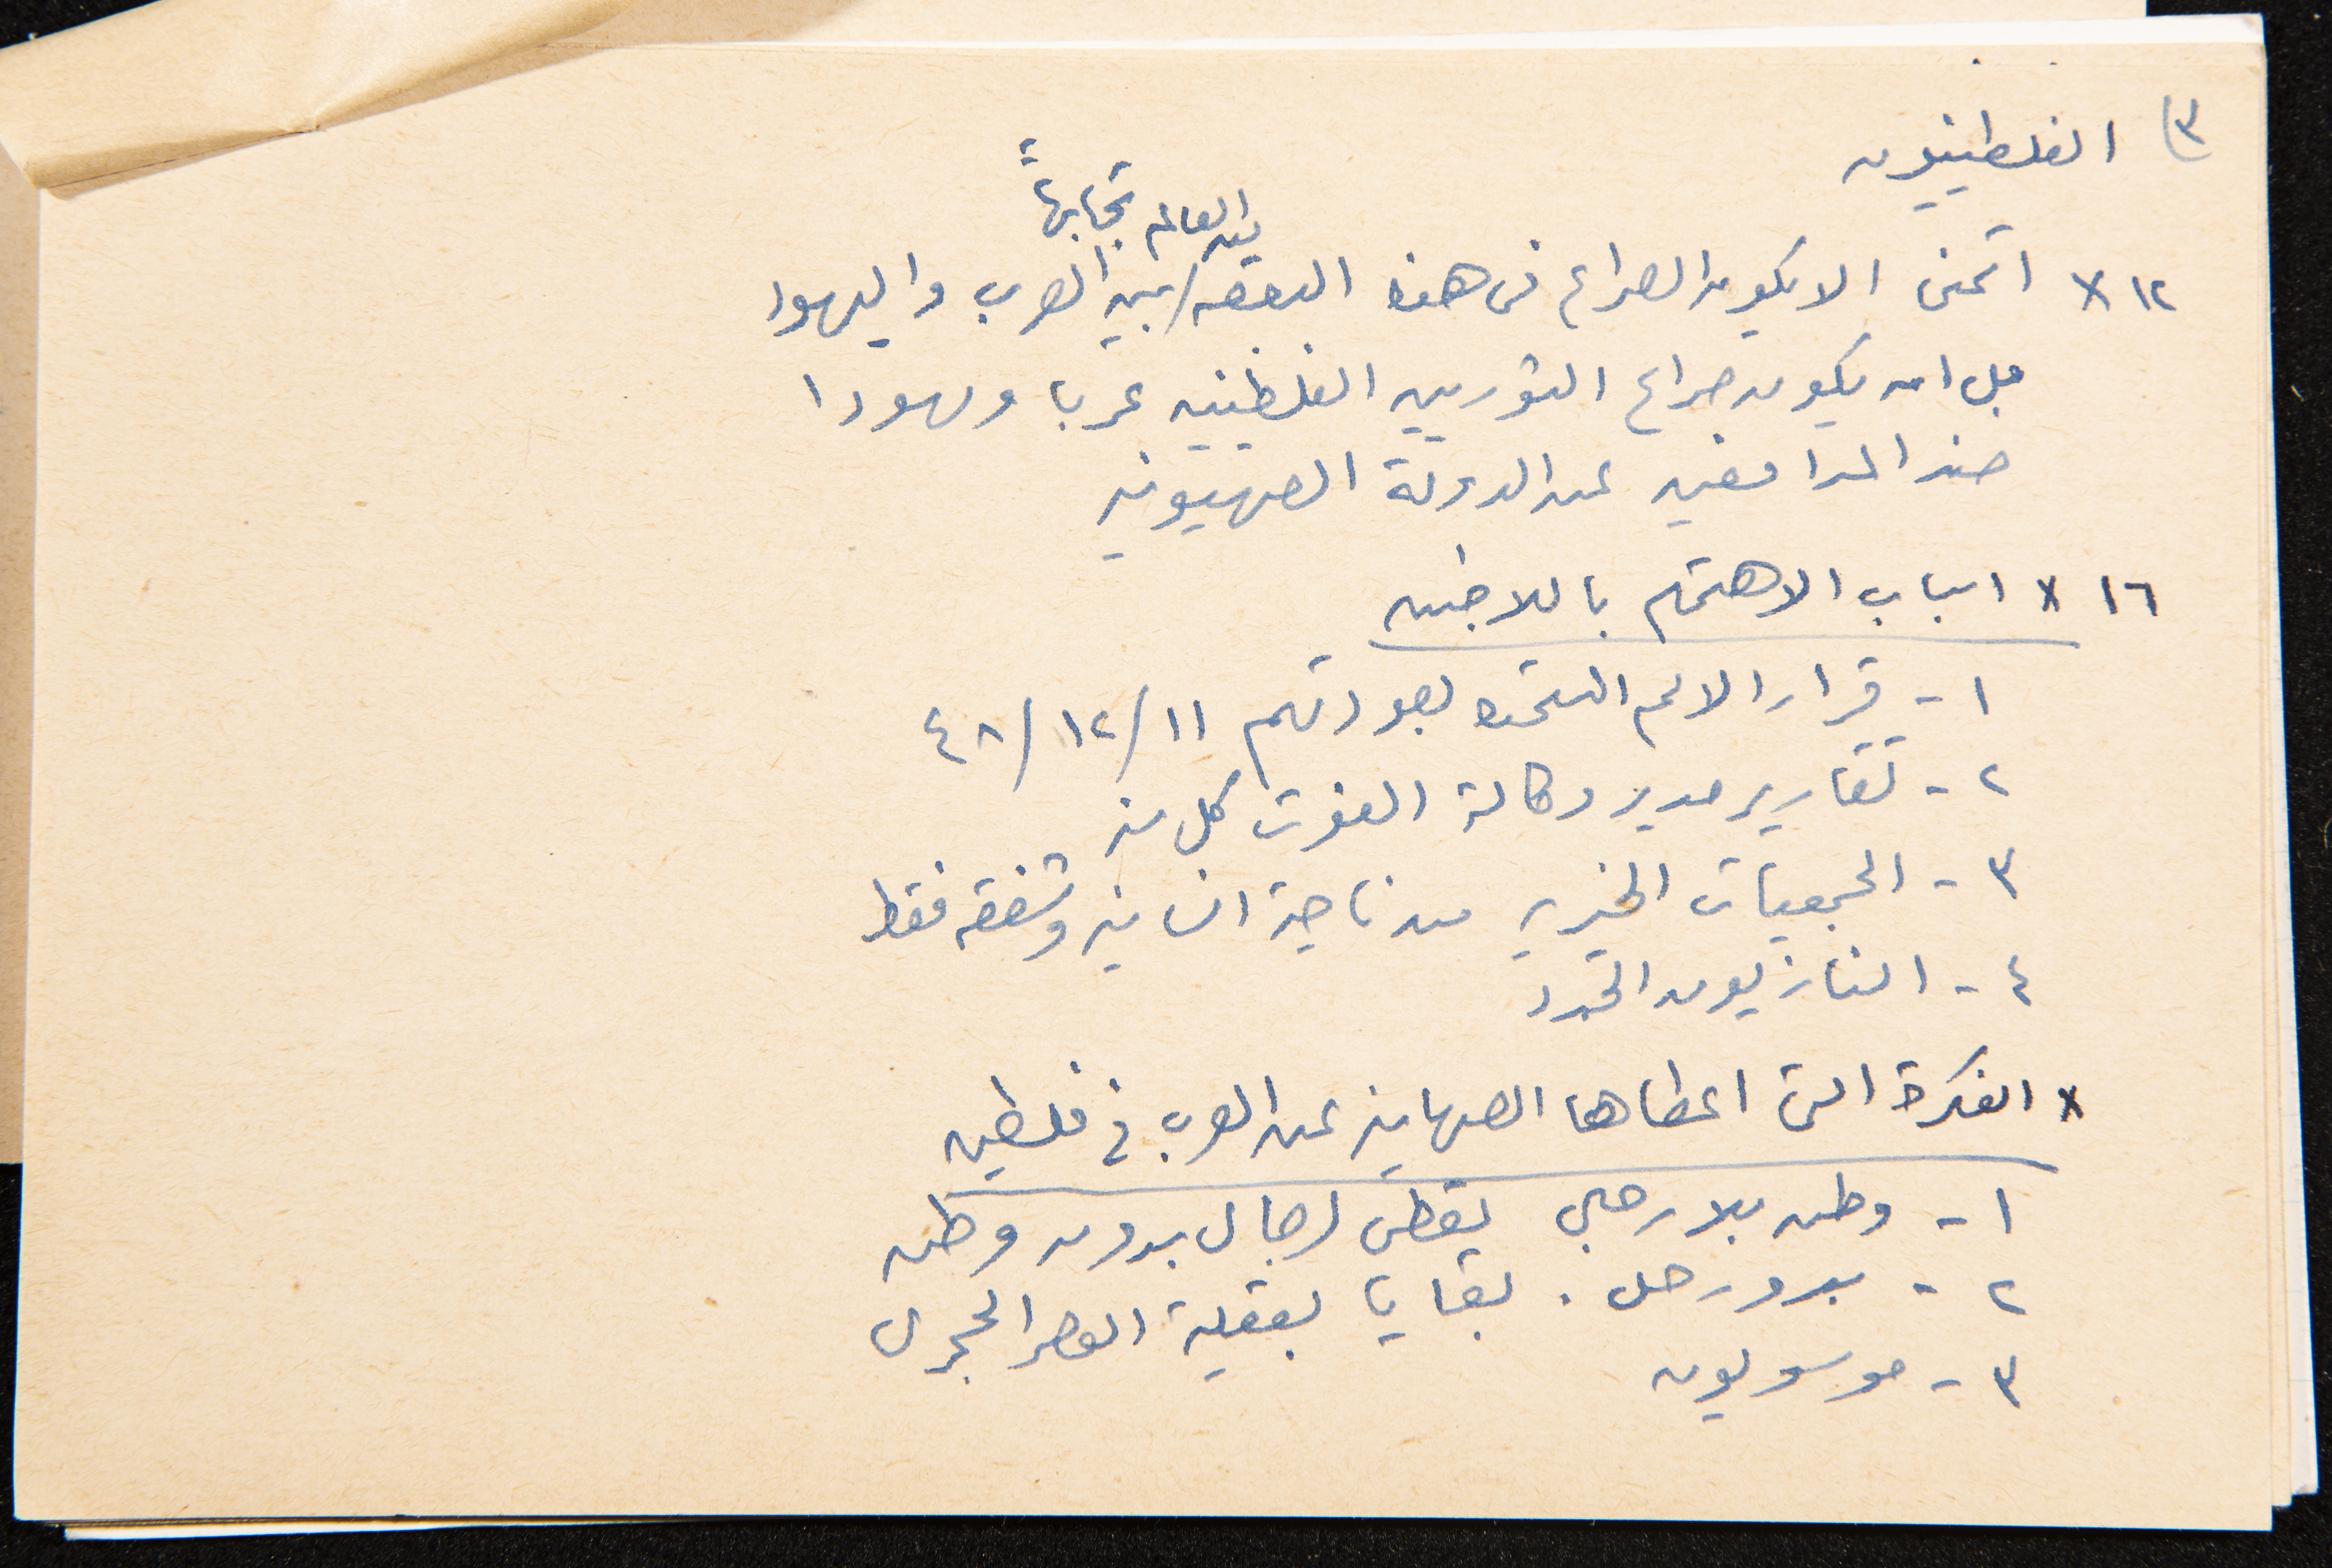 ٣) الفلسطينيون
من العالم تجابهاً
١٢ x اتمنى الا يكون الصراع في هذه البقعه / بين العرب واليهود
بل ان يكون صراع الثوريين الفلسطينيين عربا ويهودا
ضد المدافعين عن الدولة الصهيونيه
١٦ x اسباب الاهتمام باللاجئين
١ - قرار الامم المتحده بعودتهم ١١/١٢/٤٨
٢ - تقارير مدير وكالة الغوث كل سنه
٣ - الجمعيات الخيريه من ناحية انسانيه وشفقه فقط
٤ - النازيون الجدد
x الفكرة التي اعطاها الصهاينه عن العرب في فلسطين
١ - وطن بلا رجال يعطى لرجال بدون وطن
٢ - بدو رحل . بقايا بعقلية العصر الحجري
٣ -